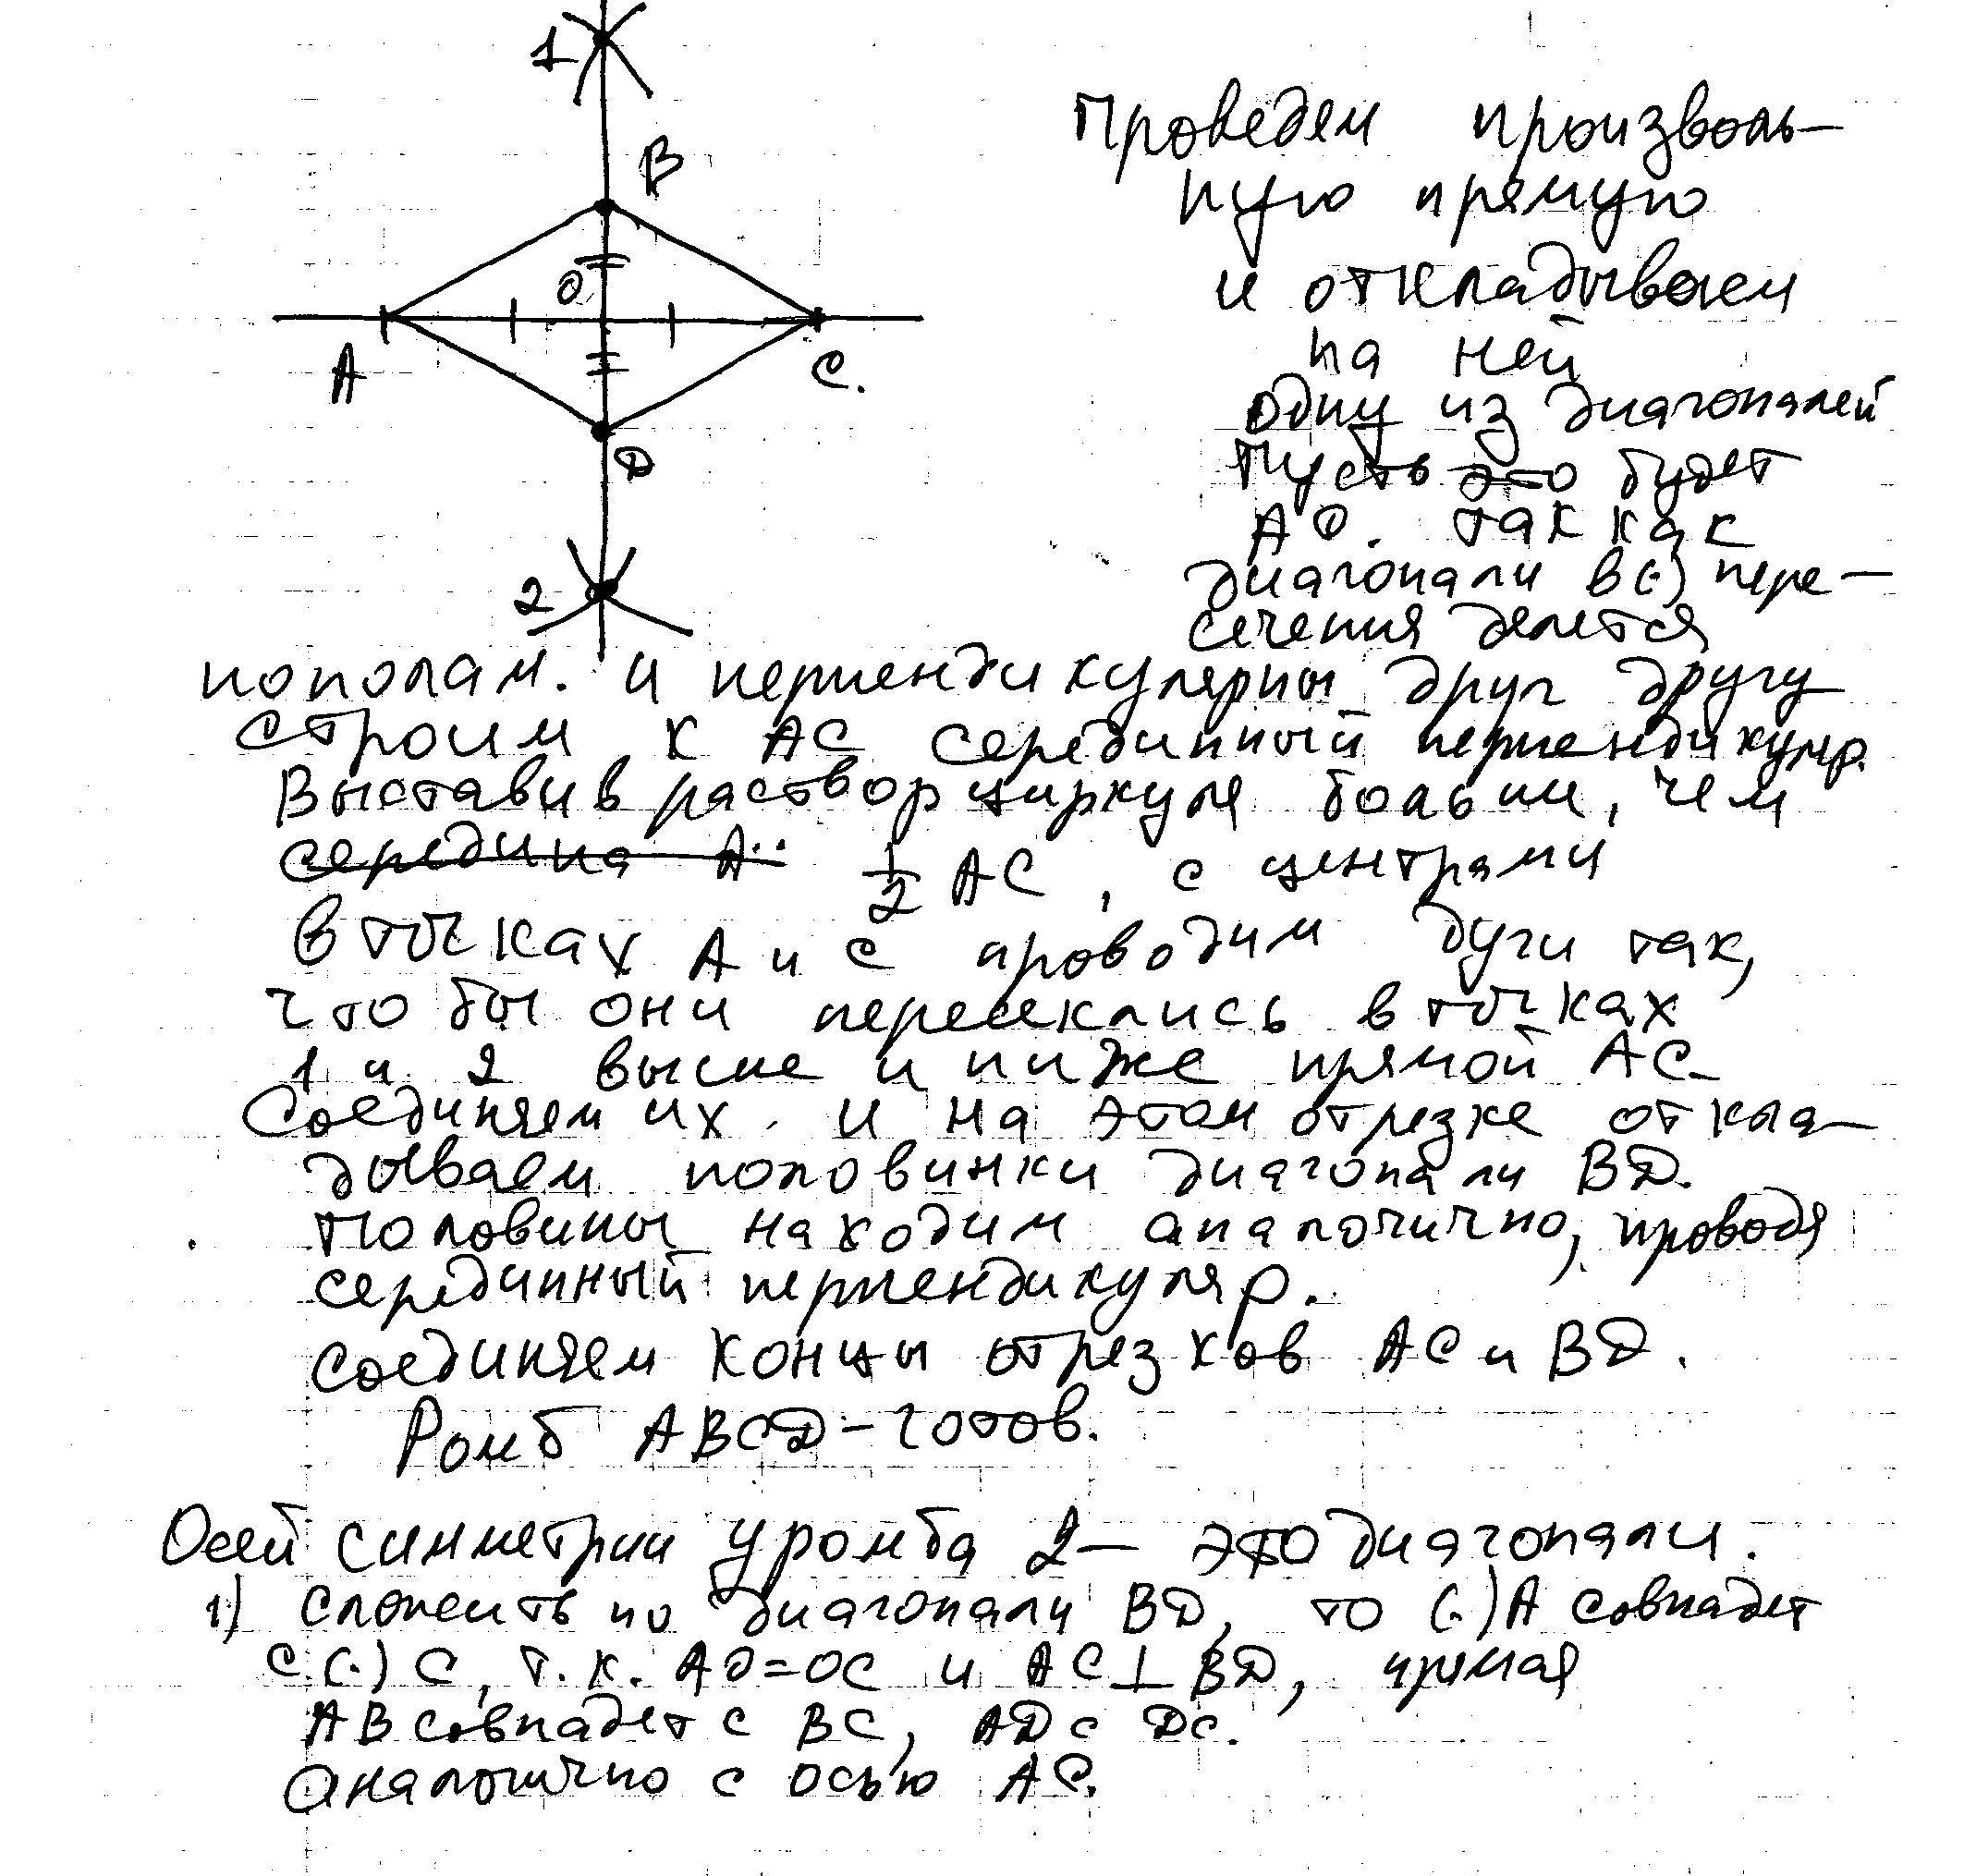 1
В
О
А
С.
D
2
Проведем произволь-
ную прямую
и откладываем
на ней
одну из диагоналей
Пусть это будет
АО. так как
диагонали в (·) пере-
сечения делется
пополам. и перпендикулярны друг другу
строим к АС серединный перпендикуляр.
Выставив раствор циркуля больш, чем
середина А
1/2 АС, с центрами
в точках А и С проводим дуги так,
что бы они пересеклись в точках
1 и 2 выше и ниже прямой АС.
Соединяем их. и на этом отрезке откла-
дываем половинки диагонали BD.
Половины находим аналогично, проводя
серединный перпендикуляр.
Соединяем концы отрезков АС и BD.
Ромб ABCD - готов.
Осей симметрии у ромба 2 - это диагонали.
1) сложить по диагонали BD, то (·)А совпадет
с (·) С, т.к. АО=ОС и АС⊥BD, прямая
АВ совпадет с ВС, AD с DC.
Аналогично с осью АС.